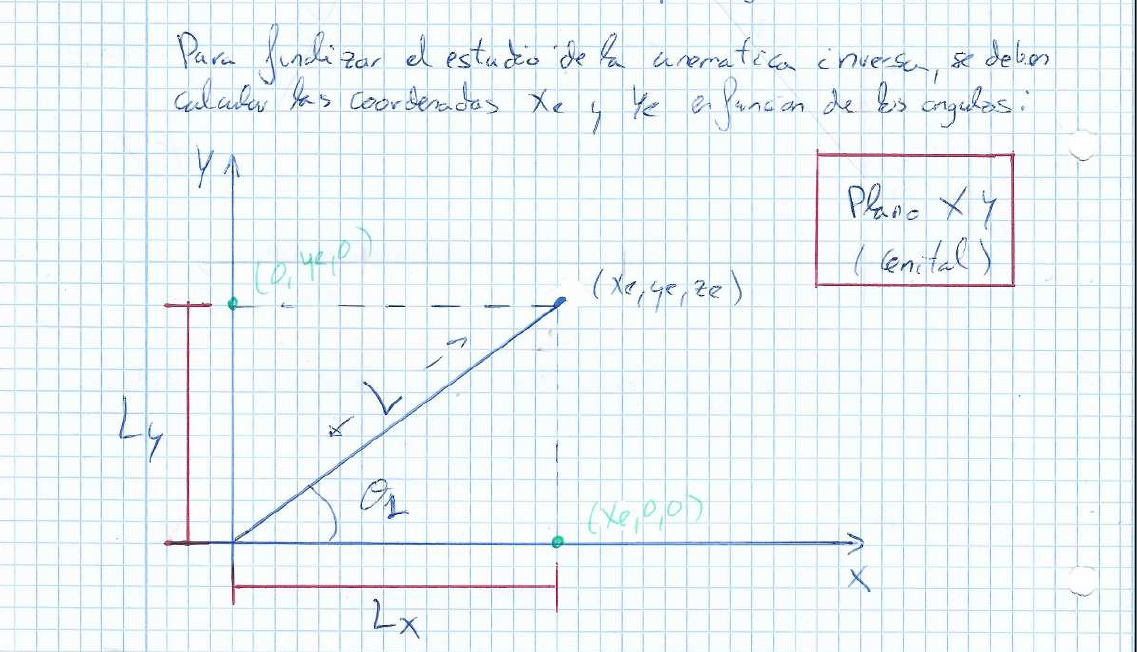 Para finalizar el estudio de la cinematica inversa, se deben
calcular las coordenadas Xe y Ye en funcion de los angulos:
Y
Plano XY
(Cenital)
(0,ye,0)
(Xe,ye,ze)
V
Ly
θ1
(Xe,0,0)
X
Lx